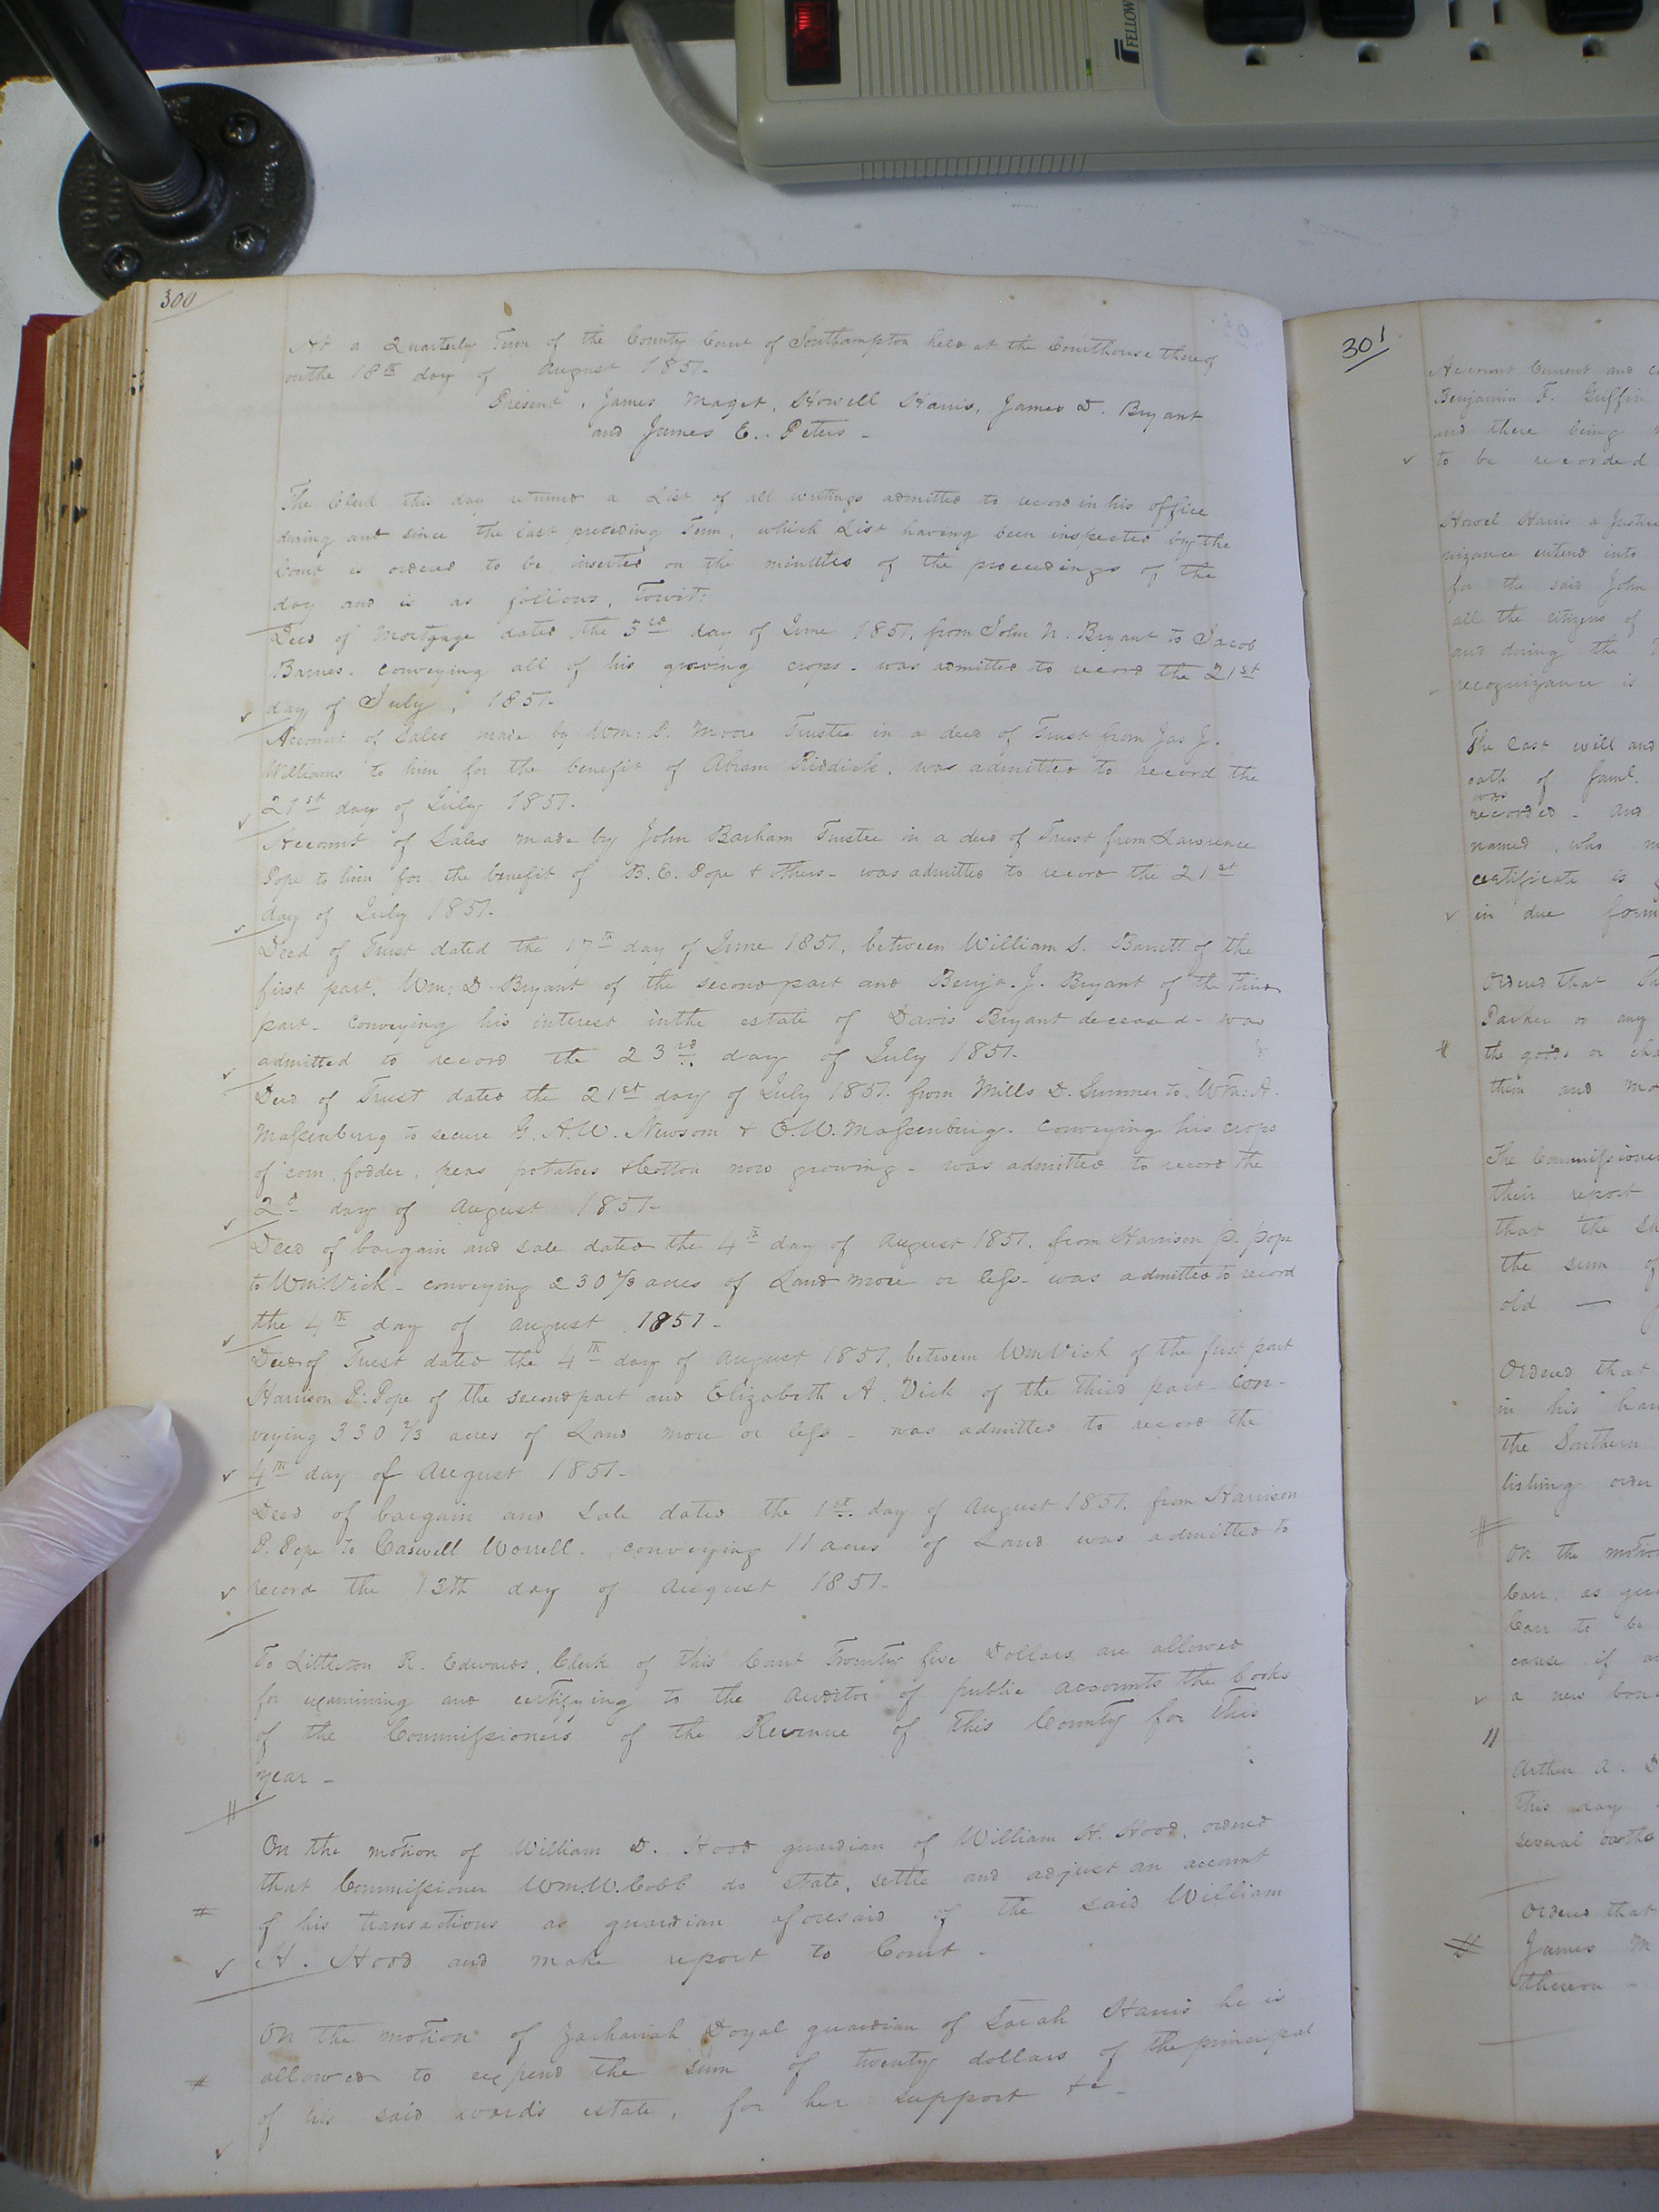 FELLOW
300
At a Quarterly Term of the County Court of Southampton held at the Courthouse thereof
on the 18th day of August 1851-
Present, James Maget, Howell Harris, James D. Bryant
and James E. Peters -
The Clerk this day returned a List of all writings admitted to record in his office
during and since the last preceding Term, which List having been inspected by the
Court is ordered to be inserted on the minutes of the proceedings of the
day and is as follows, Towit:
Deed of Mortgage dated the 3rd day of June 1851, from John N. Bryant to Jacob
Barnes. conveying all of his growing crops - was admitted to record the 21st
day of July, 1851-
Account of Sales made by Wm: P. Moore Trustee in a deed of Trust from Jas J.
Williams to him for the benefit of Abram Riddick, was admitted to record the
21st day of July 1851.
Account of Sales made by John Barham Trustee in a deed of Trust from Lawrence
Pope to him for the benefit of B. E. Pope & others - was admitted to record the 21st
day of July 1851-
Deed of Trust dated the 17th day of June 1851, between William S. Barrett of the
first part, Wm: D. Bryant of the second part and Benja. J. Bryant of the third
part - conveying his interest in the estate of Davis Bryant deceased - was
admitted to record the 23rd day of July 1851-
Deed of Trust dated the 21st day of July 1851. from Mills D. Sumner to Wm: A.
Massenburg to secure G. A. W. Newsom & O. W. Massenburg. conveying his crops
of corn, fodder, peas potatoes & Cotton now growing - was admitted to record the
2d day of August 1851-
Deed of bargain and sale dated the 4th day of August 1851, from Harrison P. Pope
to Wm: Vick - conveying 230 acres of Land more or less - was admitted to record
the 4th day of August 1851-
Deed of Trust dated the 4th day of August 1851, between Wm Vick of the first part
Harrison P. Pope of the second part and Elizabeth A. Vick of the third part - con-
veying 330 acres of Land more or less - was admitted to record the
4th day of August 1851-
Deed of bargain and Sale dated the 1st day of August 1851. from Harrison
P. Pope to Caswell Worrell - conveying 11 acres of Land was admitted to
record the 13th day of August 1851-
To Littleton R. Edwards, Clerk of this Court Twenty five Dollars are allowed
for examining and certifying to the Auditor of public accounts the books
of the Commissioners of the Revenue of this County for this
year -
On the motion of William D. Hood guardian of William H. Hood, ordered
that Commissioner Wm. W. Cobb do state, settle and adjust an account
of his transactions as guardian aforesaid of the said William
H. Hood and make report to Court -
On the motion of Zachariah Doyal guardian of Sarah Harris he is
allowed to expend the sum of twenty dollars of the principal
of his said ward's estate, for her support &c -
301
Account Current and
Benjamin F. Griffin
and there being
to be recorded
Howel Harris a Justice
nizance entered into
for the said John
all the citizens of
and during the
recognizance is
The last will and
oath of Saml.
was
recorded - And
named, who
certificate is
in due form
Ordered that
Parker or any
the goods or
them and
The Commissioners
their report
that the
the sum of
old -
Ordered that
in his
the Southern
lishing order
On the motion
Carr, as
Carr to be
cause if
a new
Arthur A.
This day
several oaths
Ordered that
James M
thereon -